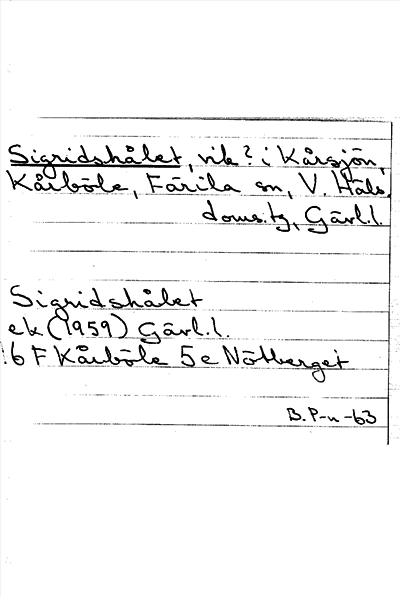 Sigridshålet, vik? i Kårsjön,
Kårböle, Färila sn, V. Häls.
doms.tg, Gävl.l.
Sigridshålet
ek (1959) Gävl.l.
16 F Kårböle 5e Nötberget
B. P-n -63